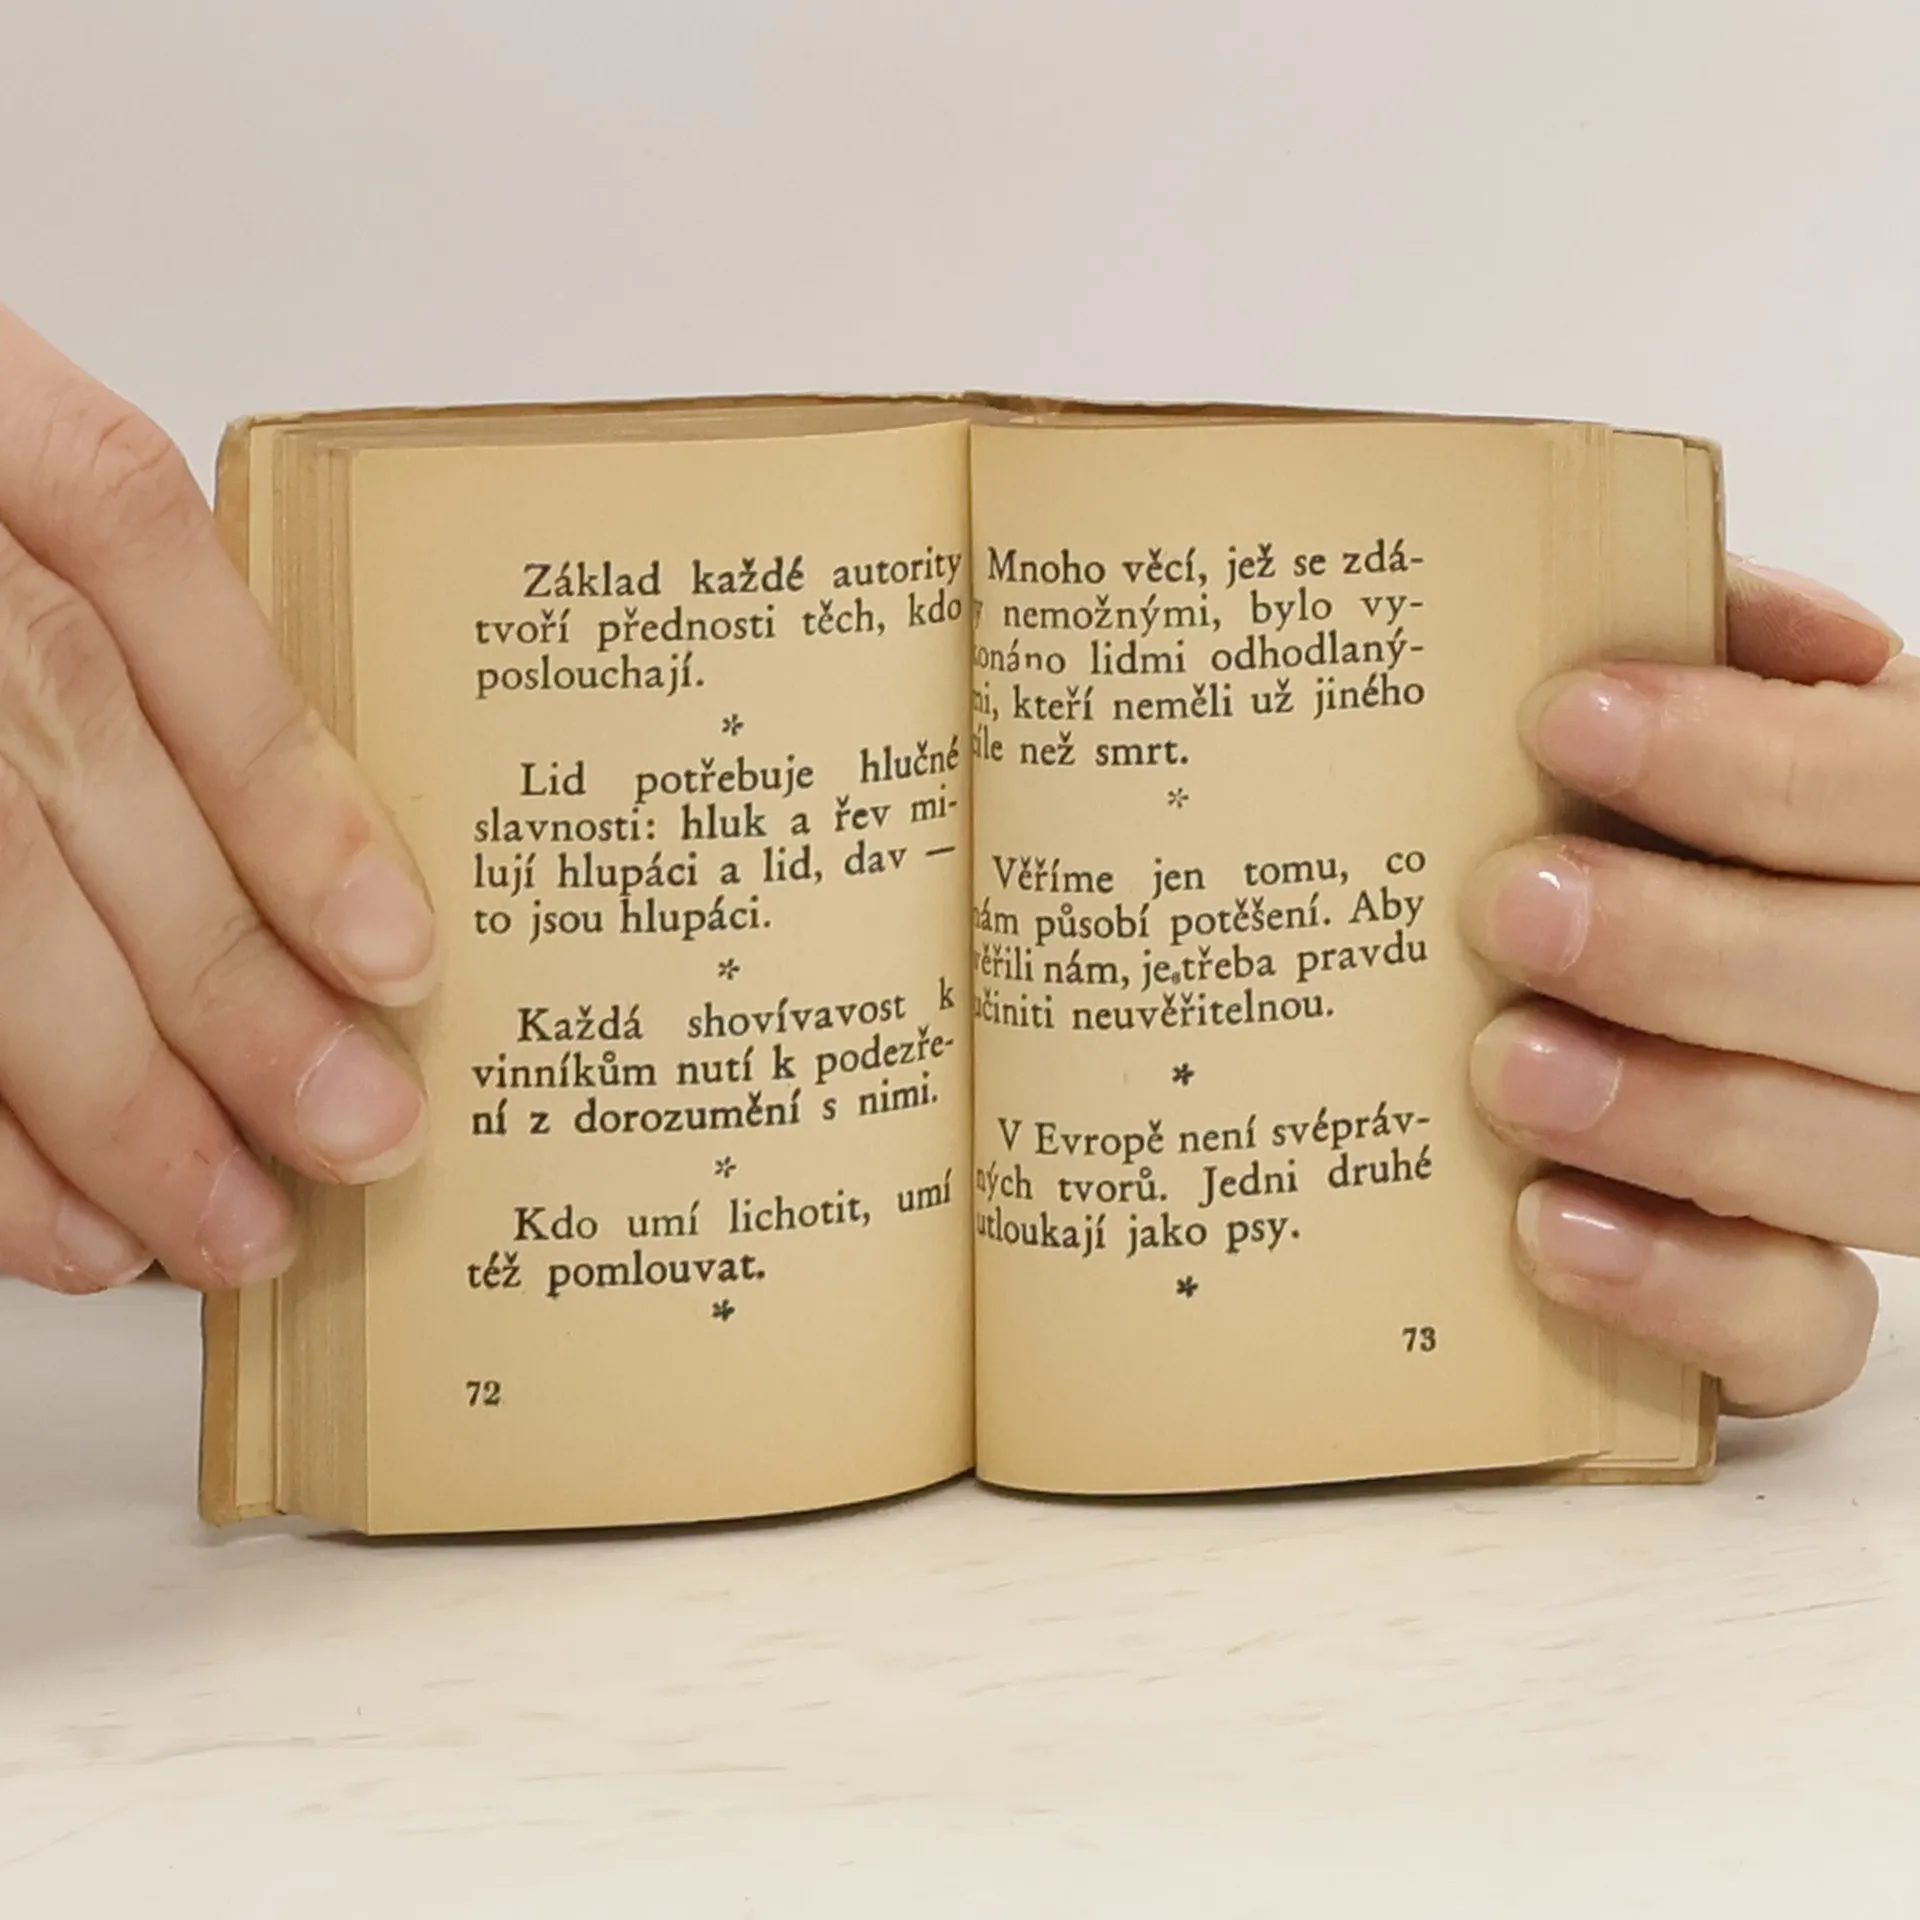 Základ každé autority
tvoří přednosti těch, kdo
poslouchají.
*
Lid potřebuje hlučné
slavnosti: hluk a řev mi-
lují hlupáci a lid, dav —
to jsou hlupáci.
*
Každá shovívavost k
vinníkům nutí k podezře-
ní z dorozumění s nimi.
*
Kdo umí lichotit, umí
též pomlouvat.
*
72
Mnoho věcí, jež se zdá-
y nemožnými, bylo vy-
konáno lidmi odhodlaný-
mi, kteří neměli už jiného
cíle než smrt.
*
Věříme jen tomu, co
nám působí potěšení. Aby
věřili nám, je třeba pravdu
učiniti neuvěřitelnou.
*
V Evropě není svépráv-
ných tvorů. Jedni druhé
utloukají jako psy.
*
73